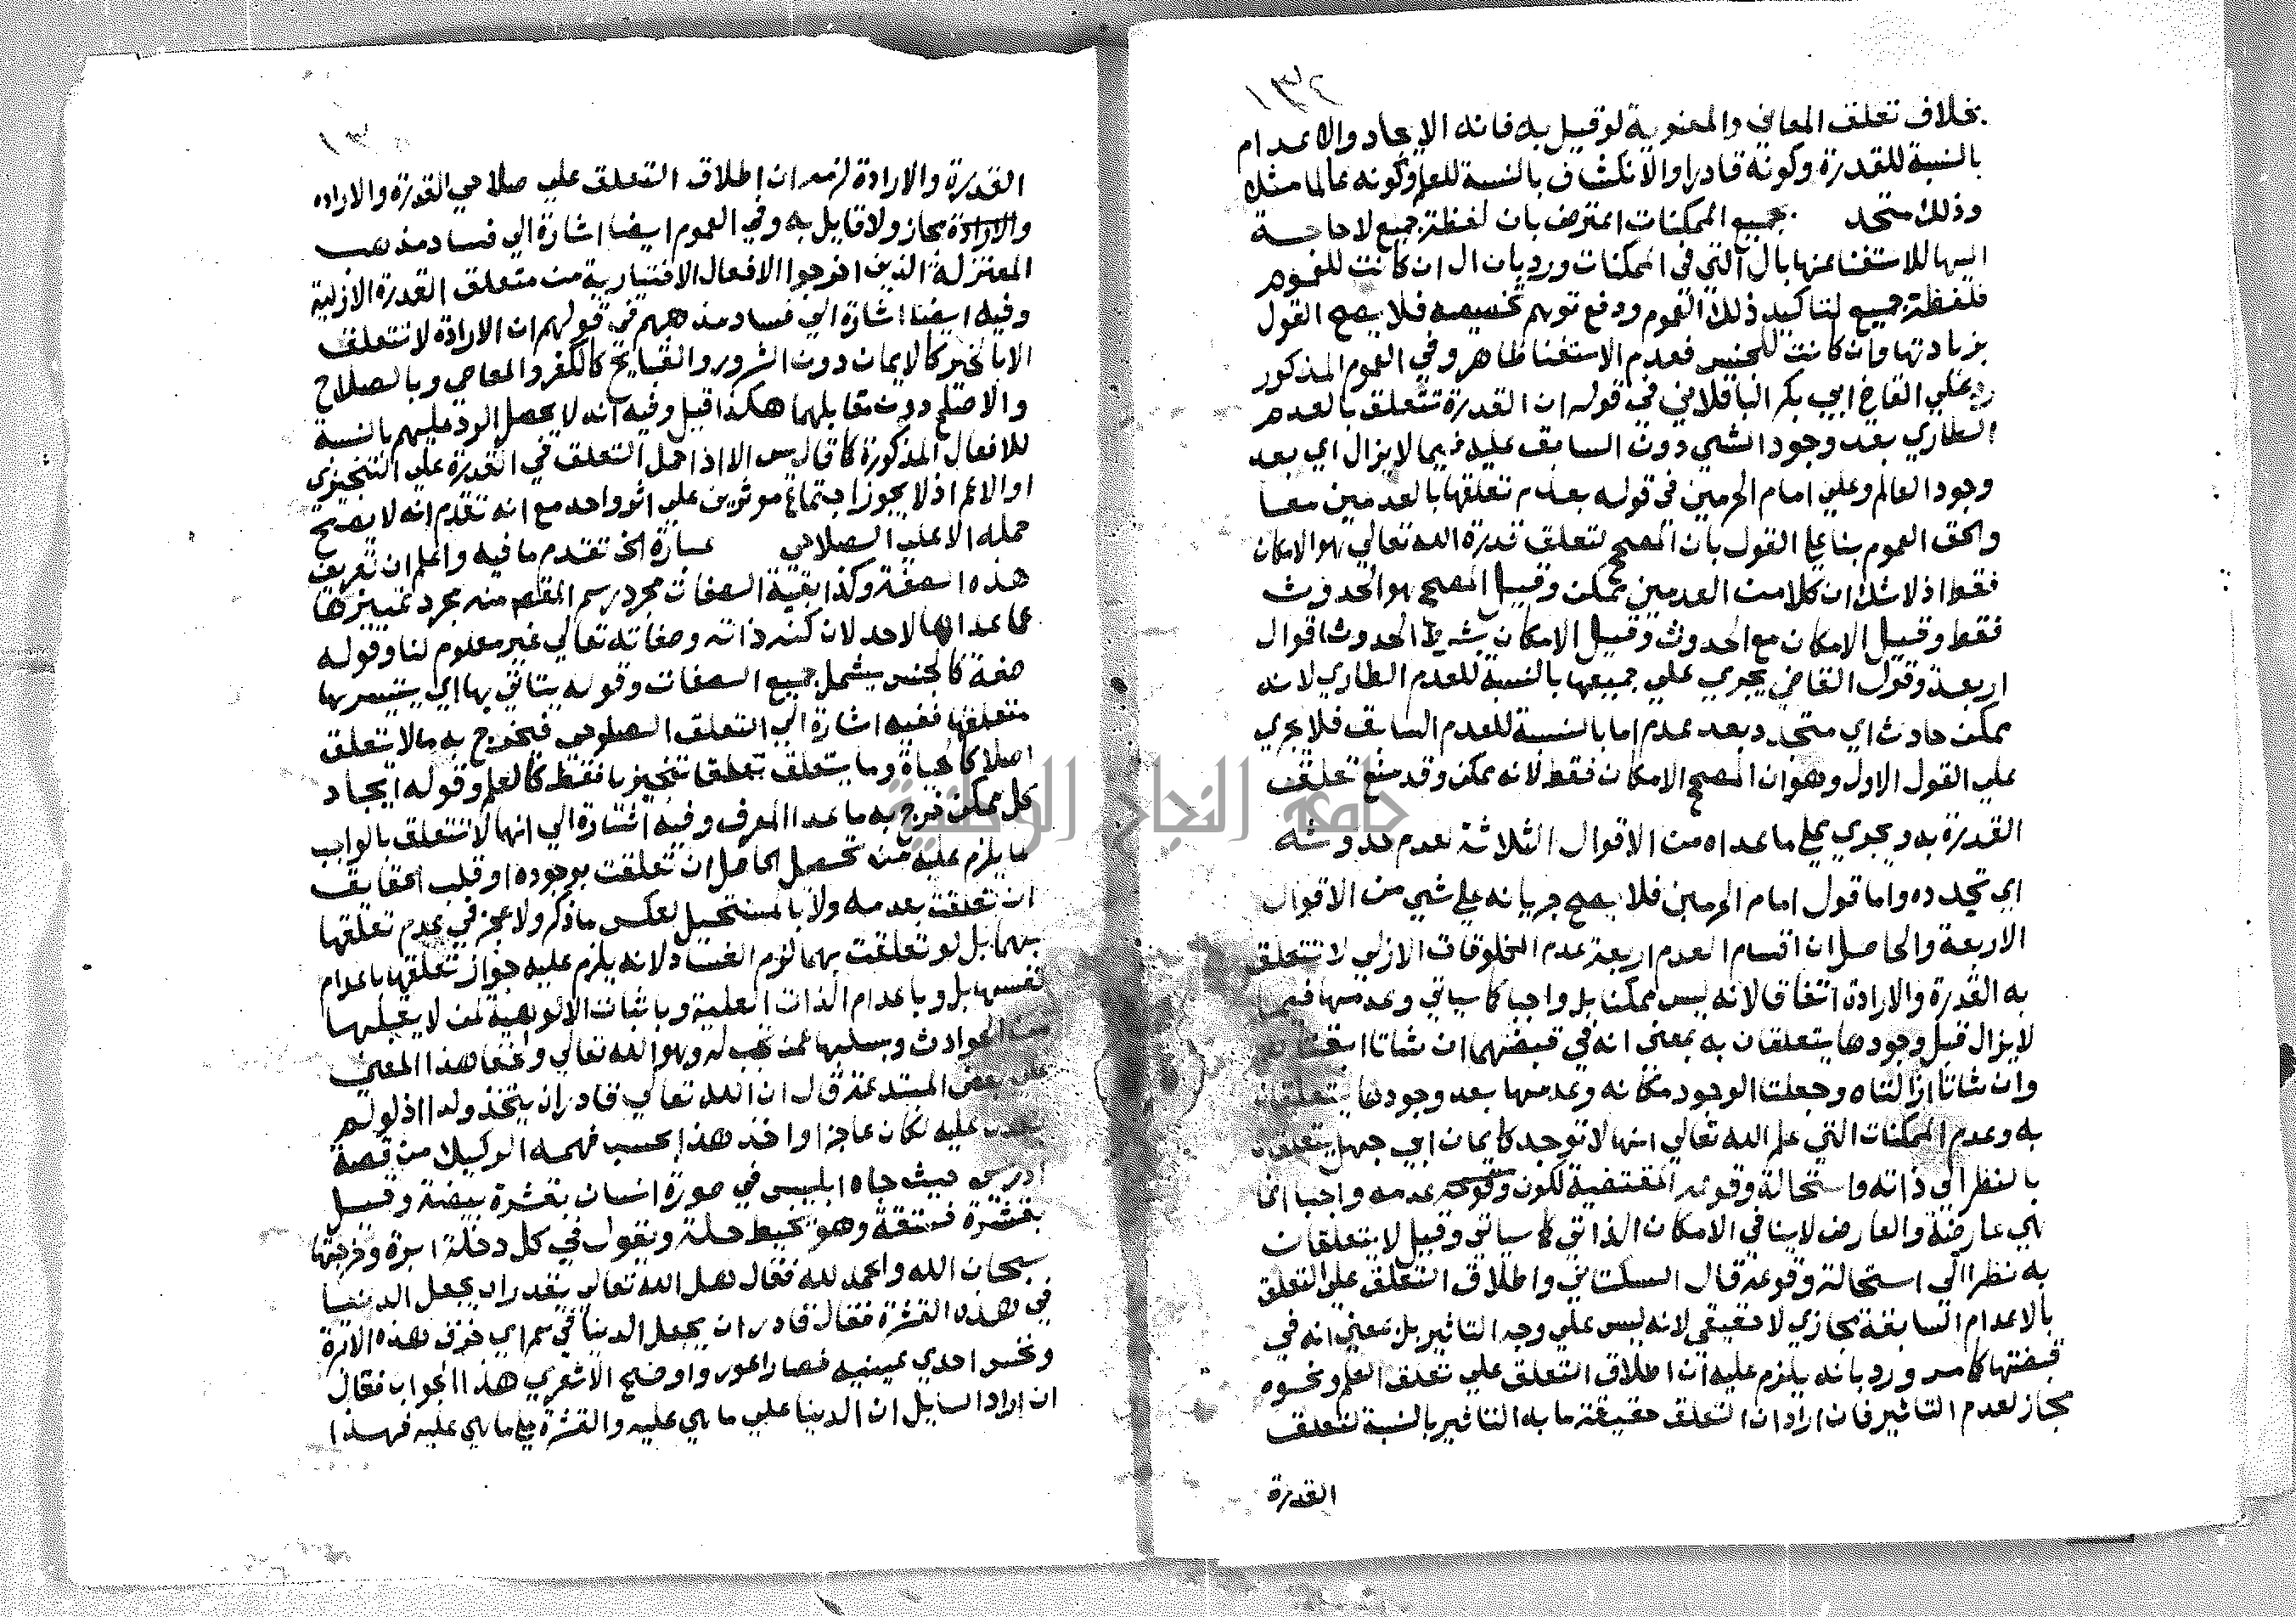 بخلاف تعلق المعاني والمعنوية لو قيل به فانه الايجاد والاعدام
بالنسبة للقدرة وكونه قادرا والانكشاف بالنسبة للعلم وكونه عالما مثلا
وذلك متحد بجميع الممكنات اعترض بان لفظة جميع لا حاجة
اليها للاستغنا عنها بال التي في الممكنات ورد بان ال ان كانت للعموم
فلفظة جميع لتاكيد ذلك العموم ودفع توهم تخصيصه فلا يصح القول
بزيادتها وان كانت للجنس فعدم الاستغنا ظاهر وفي العموم المذكور
رد على القاضي ابي بكر الباقلاني في قوله ان القدرة تتعلق بالعدم
الطاري بعد وجود الشي دون السابق عليه فيما لا يزال اي بعد
وجود العالم وعلي امام الحرمين في قوله بعدم تعلقها بالعدمين معا
والحق العموم بنا علي القول بان المصحح لتعلق قدرة الله تعالي هو الامكان
فقط اذ لا شك ان كلا من العدمين ممكن وقيل المصحح هو الحدوث
فقط وقيل الامكان مع الحدوث وقيل الامكان بشرط الحدوث اقوال
اربعة وقول القاضي يجري علي جميعها بالنسبة للعدم الطاري لانه
ممكن حادث اي متجدد بعد عدم اما بالنسبة للعدم السابق فلا يجري
علي القول الاول وهو ان المصحح الامكان فقط لانه ممكن وقد منع تعلق
القدرة به ويجري علي ما عداه من الاقوال الثلاثة لعدم حدوثه
اي تجدده واما قول امام الحرمين فلا يصح جريانه علي شي من الاقوال
الاربعة والحاصل ان اقسام العدم اربعة عدم المخلوقات الازلي لا تتعلق
به القدرة والارادة اتفاقا لانه ليس ممكنا بل واجبا كما سياتي وعدمها فيما
لا يزال قبل وجودها يتعلقان به بمعني انه في قبضتهما ان شاتا ابقتاه
وان شاتا ازالتاه وجعلتا الوجود مكانه وعدمها بعد وجودها يتعلقان
به وعدم الممكنات التي علم الله تعالي انها لا توجد كايمان ابي جهل يتعلقان
بالنظر الي ذاته واستحالة وقوعه المقتضية لكون وقوعه عدمه واجبا انما
هي عارضة والعارض لا ينافي الامكان الذاتي كما سياتي وقيل لا يتعلقان
به نظرا الي استحالة وقوعه قال السكتاني واطلاق التعلق علي التعلق
بالاعدام السابقة مجازي لا حقيقي لانه ليس علي وجه التاثير بل بمعني انه في
قبضتها كما مر ورد بانه يلزم عليه ان اطلاق التعلق علي تعلق العلم ونحوه
مجاز لعدم التاثير فان اراد ان التعلق حقيقة ما به التاثير بالنسبة لتعلق
القدرة
القدرة والارادة لزمه ان اطلاق التعلق علي صلاحي القدرة والاراده
والارادة مجاز ولا قايل به وفي العموم ايضا اشارة الي فساد مذهب
المعتزلة الذين اخرجوا الافعال الاختيارية من متعلق القدرة الازلية
وفيه ايضا اشارة الي فساد مذهبهم في قولهم ان الارادة لا تتعلق
الا بالخير كالايمان دون الشرور والقبايح كالكفر والمعاصي وبالصلاح
والاصلح دون مقابلهما هكذا قيل وفيه انه لا يحصل الرد عليهم بالنسبة
للافعال المذكورة كما قال يس الا اذا حمل التعلق في القدرة علي التنجيزي
او الاعم اذ لا يجوز اجتماع موثرين علي اثر واحد مع انه تقدم انه لا يصح
حمله الا علي الصلاحي عبارة الخ تقدم ما فيه واعلم ان تعريف
هذه الصفة وكذا بقية الصفات مجرد رسم المقصد منه مجرد تمييزها
عما عداها لا حد لان كنه ذاته وصفاته تعالي غير معلوم لنا وقوله
صفة كالجنس يشمل جميع الصفات وقوله يتاتي بها اي يتيسر بها
متعلقها ففيه اشارة الي التعلق الصلوحي فيخرج به ما لا يتعلق
اصلا كالحياة وما يتعلق تعلقا تنجيزيا فقط كالعلم وقوله ايجاد
كل ممكن خرج به ما عدا المعرف وفيه اشارة الي انها لا تتعلق بالواجب
لما يلزم عليه من تحصيل الحاصل ان تعلقت بوجوده او قلب الحقايق
ان تعلقت بعدمه ولا بالمستحيل لعكس ما ذكر ولا عجز في عدم تعلقها
بهما بل لو تعلقت بهما لزم الفساد لانه يلزم عليه جواز تعلقها باعدام
نفسها بل وباعدام الذات العلية وباثبات الالوهية لمن لا يقبلها
من الحوادث وبسلبها عمن تجب له وهو الله تعالي ولخفا هذا المعني
علي بعض المبتدعة قال ان الله تعالي قادر ان يتخذ ولدا اذ لو لم
يقدر عليه لكان عاجزا واخذ هذا بحسب فهمه الركيك من قصة
ادريس حيث جاه ابليس في صورة انسان بقشرة بيضة وقيل
بقشرة فستقة وهو يخيط حلة ويقول في كل دخلة ابرة وخرجتها
سبحان الله والحمد لله فقال هل الله تعالي يقدر ان يجعل الدنيا
في هذه القشرة فقال قادر ان يجعل الدنيا في سم اي خرق هذه الابرة
ونخس احدي عينيه فصار اعور واوضح الاشعري هذا الجواب فقال
ان اراد السايل ان الدنيا علي ما هي عليه والقشرة علي ما هي عليه فهذا
جامعة النجاح الوطنية